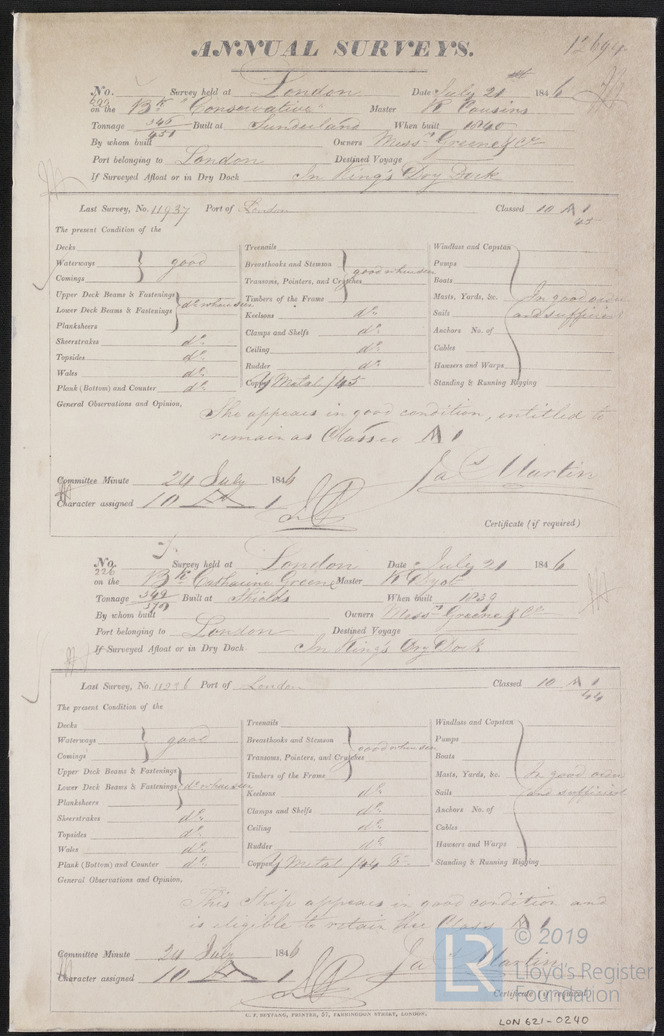 ANNUAL SURVEYS.
12694
No. Survey held at London Date July 21st 1846
on the Bk "Conservative" Master R Cousins
Tonnage 345 Built at Sunderland When built 1840
451
By whom built Owners Messrs Greene & Co
Port belonging to London Destined Voyage
If Surveyed Afloat or in Dry Dock In King's Dry Dock
Last Survey, No. 11937 Port of London Classed 10 A 1
45
The present Condition of the
Decks
Waterways good
Comings
Upper Deck Beams & Fastenings
Lower Deck Beams & Fastenings do when seen
Planksheers
Sheerstrakes do
Topsides do
Wales do
Plank (Bottom) and Counter do
Treenails
Breasthooks and Stemson
Transoms, Pointers, and Crutches good when seen
Timbers of the Frame
Keelsons do
Clamps and Shelfs do
Ceiling do
Rudder do
Copper Y Metal /45
Windlass and Capstan
Pumps
Boats
Masts, Yards, &c. In good order
Sails and sufficient
Anchors No. of
Cables
Hawsers and Warps
Standing & Running Rigging
General Observations and Opinion,
She appears in good condition, entitled to
remain as Classed A 1
Jas Martin
Committee Minute 24 July 1846
Character assigned 10 A 1
Certificate (if required)
No. Survey held at London Date July 21 1846
226
on the Bk Catharine Greene Master R Dyot
Tonnage 349 Built at Shields When built 1839
By whom built Owners Messrs Greene & Co
Port belonging to London Destined Voyage
If Surveyed Afloat or in Dry Dock In King's Dry Dock
Last Survey, No. 11936 Port of London Classed 10 A 1
44
The present Condition of the
Decks
Waterways good
Comings
Upper Deck Beams & Fastenings
Lower Deck Beams & Fastenings do when seen
Planksheers
Sheerstrakes do
Topsides do
Wales do
Plank (Bottom) and Counter do
Treenails
Breasthooks and Stemson
Transoms, Pointers, and Crutches good when seen
Timbers of the Frame
Keelsons do
Clamps and Shelfs do
Ceiling do
Rudder do
Copper Y Metal /44
Windlass and Capstan
Pumps
Boats
Masts, Yards, &c. In good order
Sails and sufficient
Anchors No. of
Cables
Hawsers and Warps
Standing & Running Rigging
General Observations and Opinion,
This Ship appears in good condition and
is eligible to retain her Class A 1
Jas Martin
Committee Minute 24 July 1846
Character assigned 10 A 1
Certificate (if required)
C. F. SEYFANG, PRINTER, 57, FARRINGDON STREET, LONDON.
LR © 2019
Lloyd's Register
Foundation
LON 621-0240